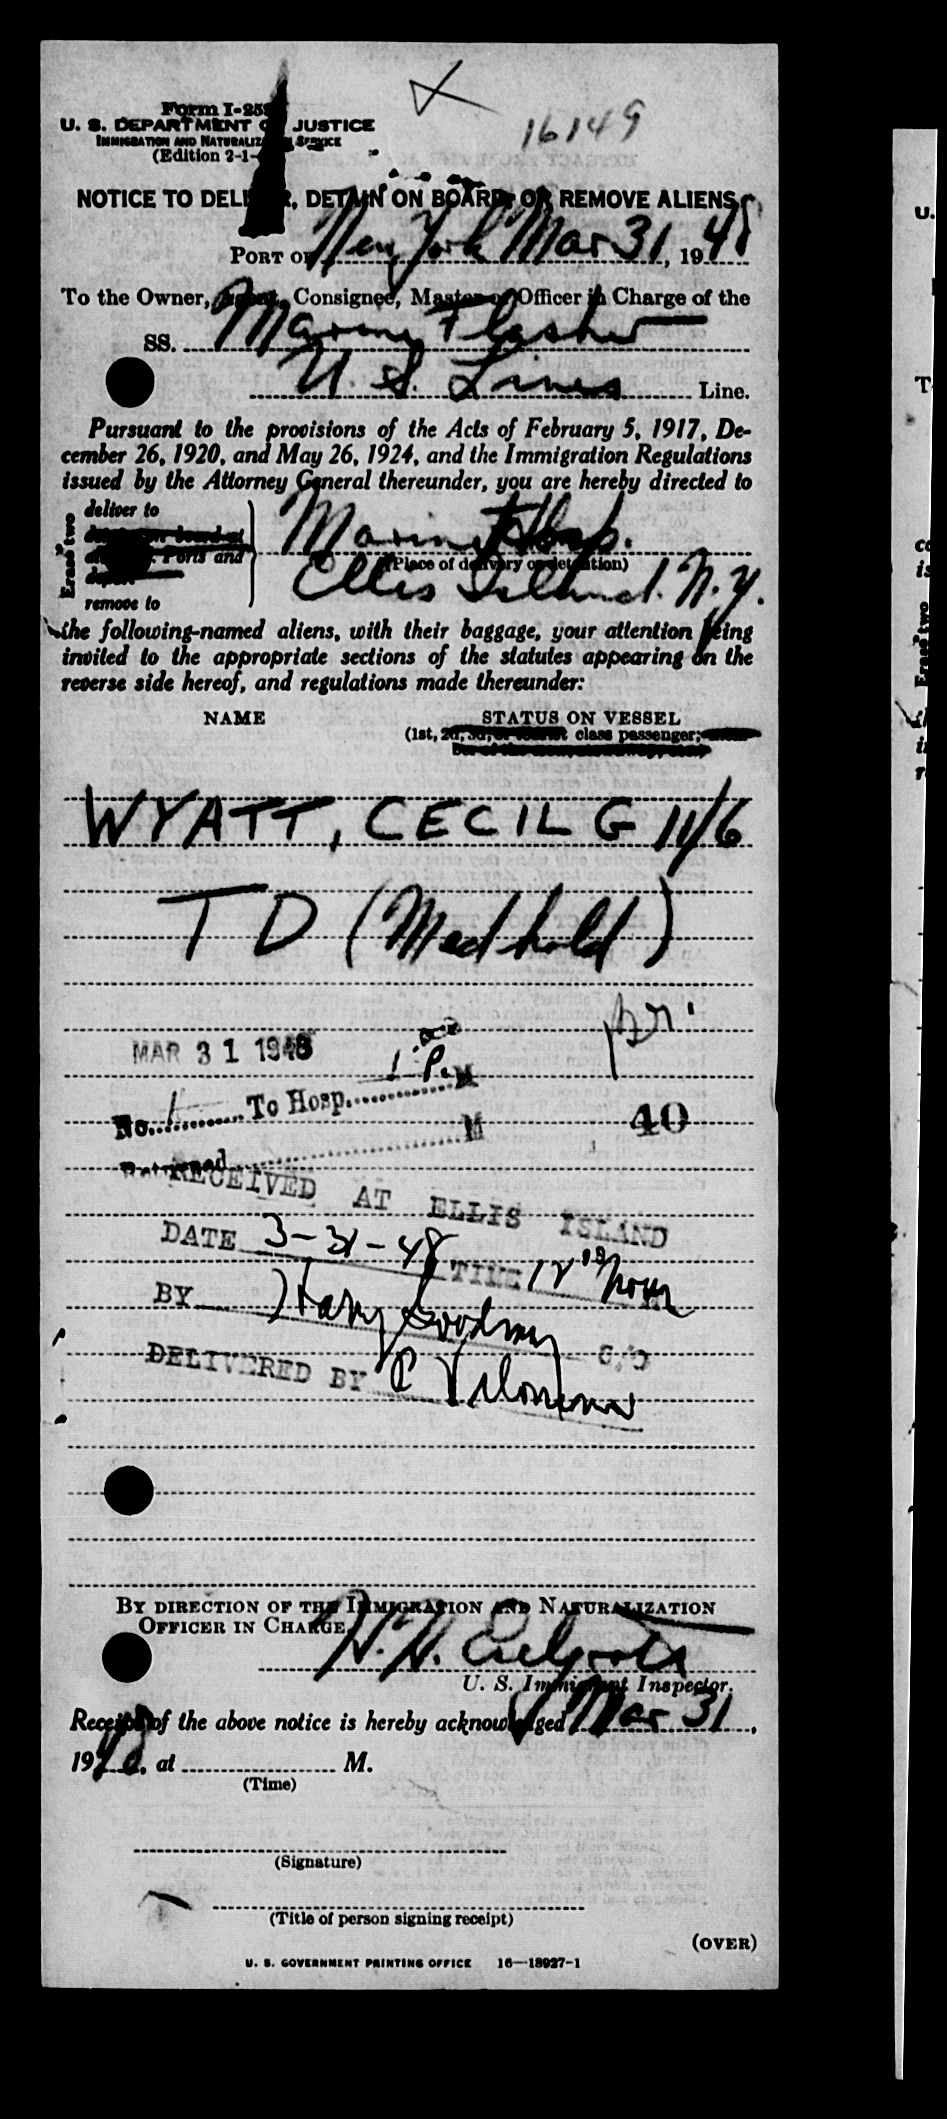 16149
Form I-259
U. S. DEPARTMENT OF JUSTICE
IMMIGRATION AND NATURALIZATION SERVICE
(Edition 2-1-
NOTICE TO DELIVER, DETAIN ON BOARD, OR REMOVE ALIENS
PORT OF New York Mar 31, 1948
To the Owner, Agent, Consignee, Master or Officer in Charge of the
SS. Marine Flasher
U. S. Lines Line.
Pursuant to the provisions of the Acts of February 5, 1917, De-
cember 26, 1920, and May 26, 1924, and the Immigration Regulations
issued by the Attorney General thereunder, you are hereby directed to
Erase two
deliver to
Ports and
remove to
Marine Hosp.
(Place of delivery or detention)
Ellis Island. N.Y.
the following-named aliens, with their baggage, your attention being
invited to the appropriate sections of the statutes appearing on the
reverse side hereof, and regulations made thereunder:
NAME STATUS ON VESSEL
(1st, 2d, 3d, or tourist class passenger;
WYATT, CECIL G 11/6
TD (Med hold)
MAR 31 1948 1 P. M
No. 1 To Hosp. M 40
Returned
RECEIVED AT ELLIS ISLAND
DATE 3-31-48 TIME 12
BY Harry
DELIVERED BY C
BY DIRECTION OF THE IMMIGRATION AND NATURALIZATION
OFFICER IN CHARGE
H. H.
U. S. Immigrant Inspector.
Receipt of the above notice is hereby acknowledged Mar 31,
1948, at M.
(Time)
(Signature)
(Title of person signing receipt)
(OVER)
U. S. GOVERNMENT PRINTING OFFICE 16—18927-1